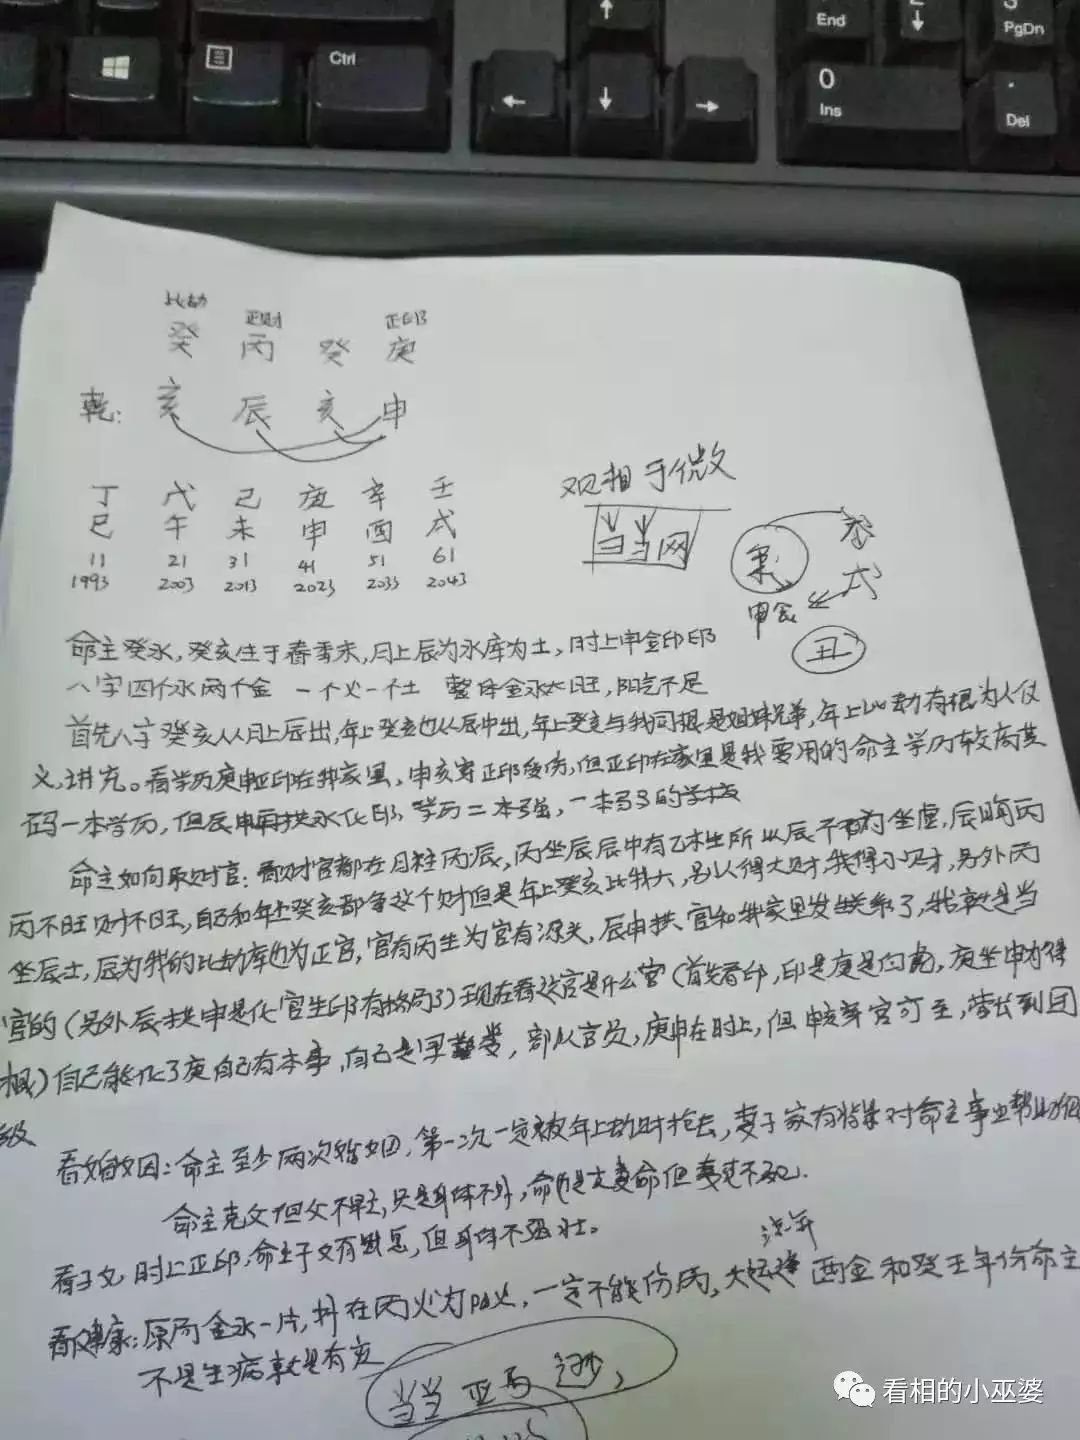 End
PgDn
Ctrl
0
Ins
.
Del
比劫 正财 正印
癸 丙 癸 庚
乾: 亥 辰 亥 申
丁 戊 己 庚 辛 壬
巳 午 未 申 酉 戌
11 21 31 41 51 61
1993 2003 2013 2023 2033 2043
观相于微
当当网
申
丑
命主癸水,癸亥生于春季末,月上辰为水库为土,时上申金印
八字四个水两个金 一个火一个土 整体金水太旺,阳气不足
首先八字癸亥从月上辰出,年上癸亥也从辰中出,年上癸亥与我同根是姐妹兄弟,年上比劫有根为人仗
义,讲究。看学历庚申正印在我家里,申亥害正印受伤,但正印在家里是我要用的命主学历较高其
码一本学历,但辰申再拱水化印,学历二本强,一本弱的学校
命主如何取财官:看财官都在月柱丙辰,丙坐辰辰中有乙木生所以辰不为坐虚,辰晦丙
丙不旺财不旺,自己和年上癸亥都争这个财但是年上癸亥比我大,别人得大财,我得小财,另外丙
坐辰土,辰为我的比劫库也为正官,官有丙生为官有源头,辰申拱官和我家里发生关系了,我就是当
官的(另外辰拱申是化官生印有格局了)现在看这官是什么官(首先看印,印是庚是白虎,庚坐申为得
根)自己能化了庚自己有本事,自己是军警类,部队官员,庚申在时上,但申亥害官可至,营长到团
级
看婚姻:命主至少两次婚姻,第一次一定被年上劫财抢去,妻子家有背景对命主事业帮助很
命主克父但父不早亡,只是身体不好,命硬是克妻命但妻死不死.
看子女,时上正印,命主子女有出息,但身体不强壮。
流年
看健康:原局金水一片,抖在丙火为阳火,一定不能伤丙,大运逢 酉金和癸壬年份命主
不是生病就是有灾
当当 亚马逊,
看相的小巫婆